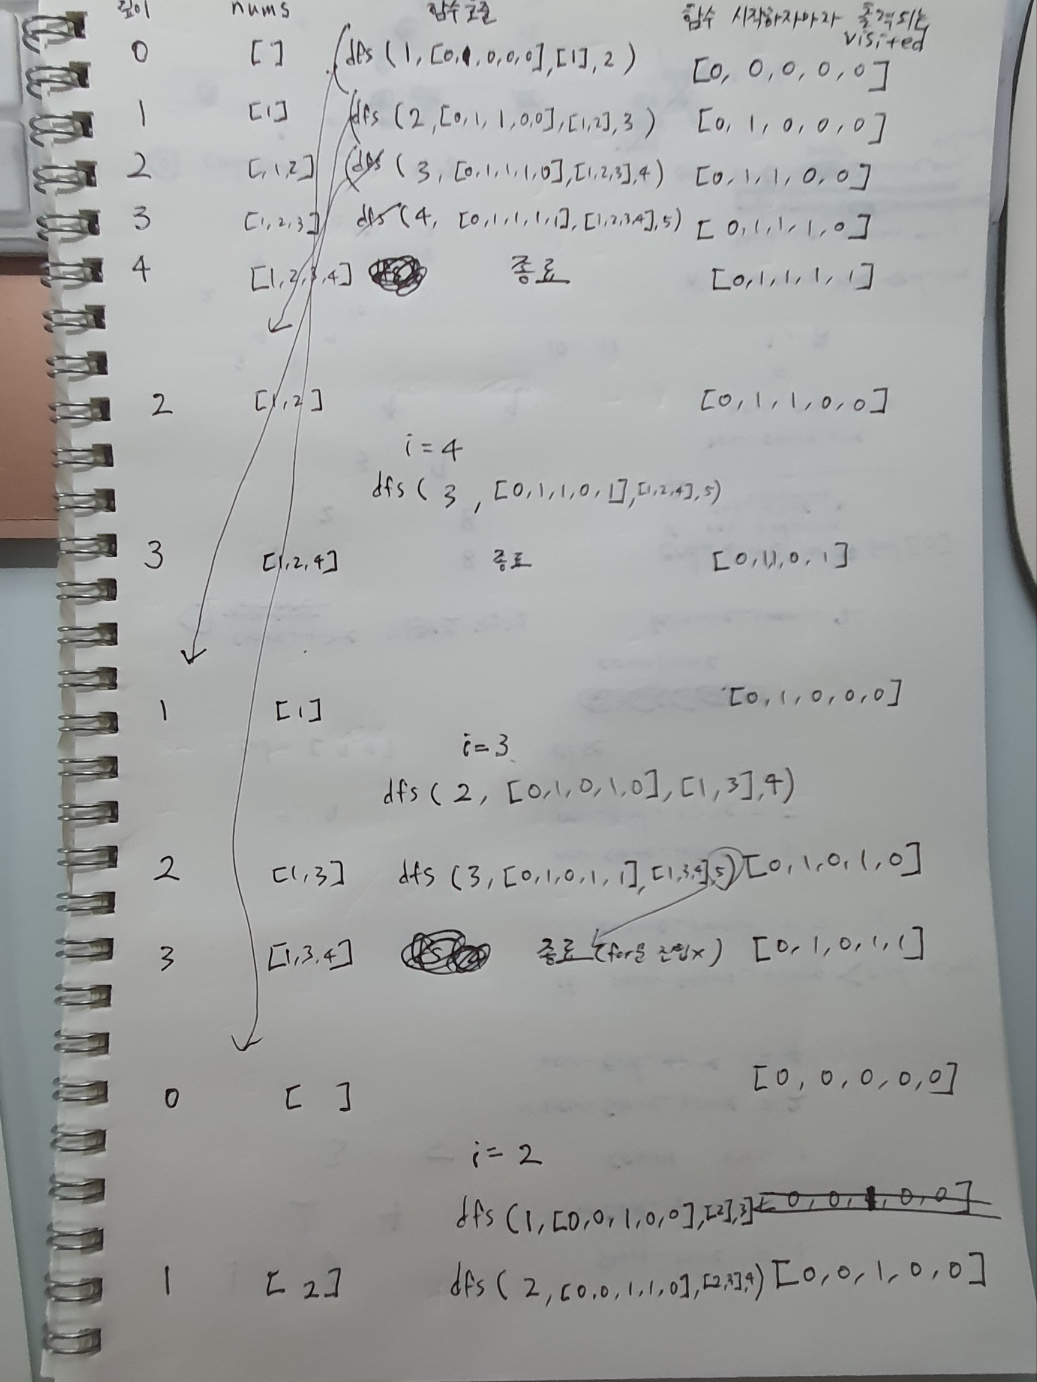 깊이 nums 함수 호출 함수 시작하자마자 출력되는 visited
0 [ ] dfs ( 1, [0,1,0,0,0],[1],2 ) [0, 0, 0, 0, 0]
1 [1] dfs ( 2,[0,1,1,0,0],[1,2],3 ) [0, 1, 0, 0, 0]
2 [,1,2] dfs ( 3, [0,1,1,1,0],[1,2,3],4) [0,1,1,0,0]
3 [1,2,3] dfs (4, [0,1,1,1,1],[1,2,3,4],5) [ 0,1,1,1,0]
4 [1,2,3,4] 종료 [0,1,1,1,1]
2 [1,2] [0,1,1,0,0]
i=4
dfs ( 3, [0,1,1,0,1],[1,2,4],5)
3 [1,2,4] 종료 [0,1,1,0,1]
1 [1] [0,1,0,0,0]
i=3
dfs ( 2, [0,1,0,1,0],[1,3],4)
2 [1,3] dfs (3,[0,1,0,1,1],[1,3,4],5) [0,1,0,1,0]
3 [1,3,4] 종료 (for문 진입x) [0,1,0,1,1]
0 [ ] [0,0,0,0,0]
i=2
dfs (1,[0,0,1,0,0],[2],3] [0,0,1,0,0]
1 [2] dfs ( 2,[0,0,1,1,0],[2,3],4) [0,0,1,0,0]